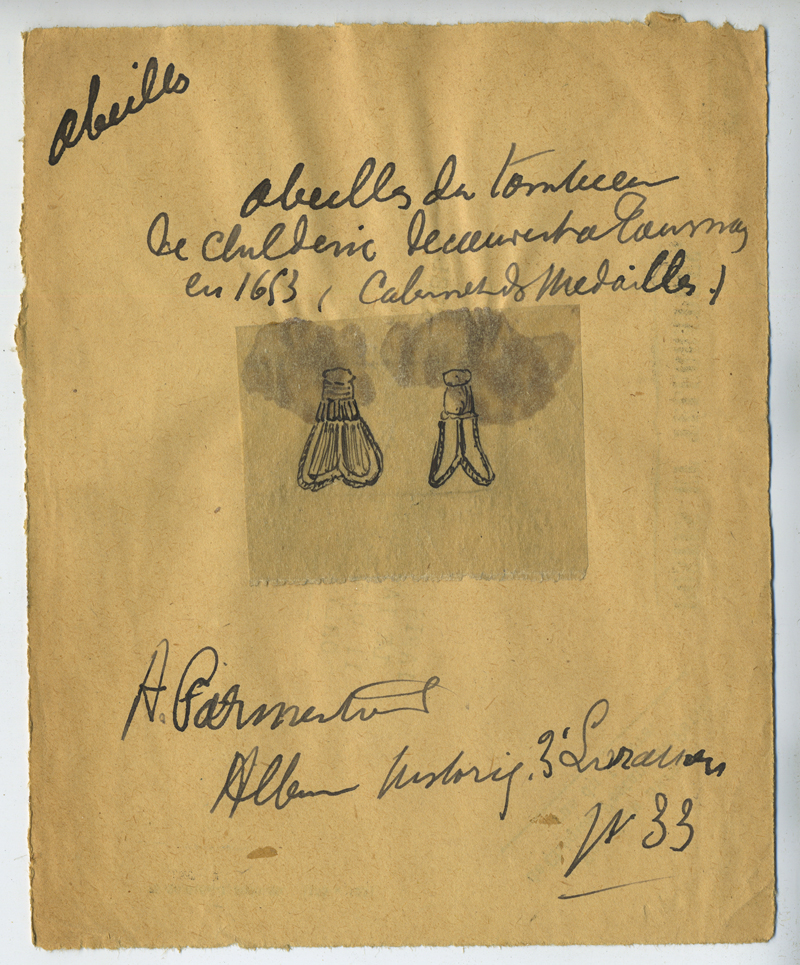 abeilles
abeilles du tombeau
de childeric decouvert a Tournay
en 1653 ( Cabinet ds Medailles.)
A. Parmentier
Album historiq. 3e Livraison
N 33